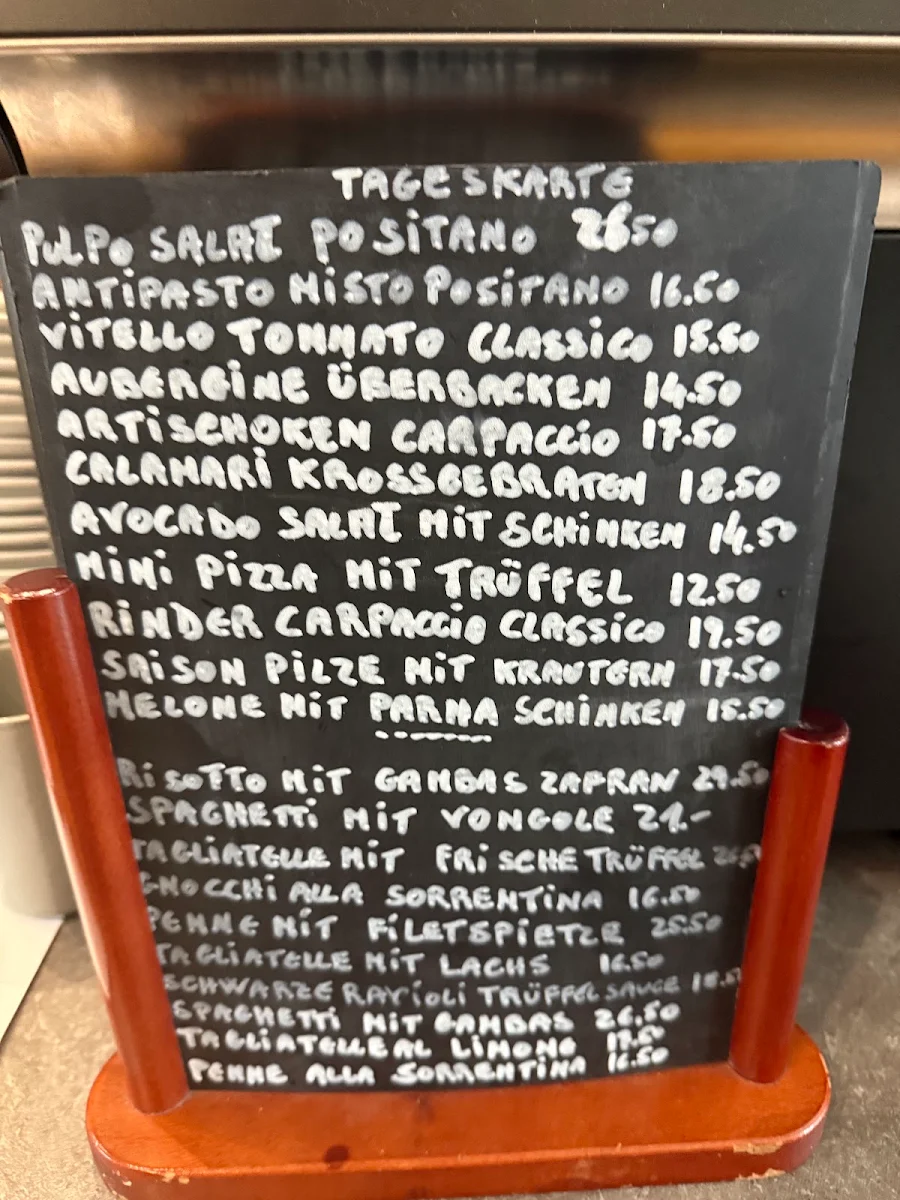 TAGESKARTE
PULPO SALAT POSITANO 26.50
ANTIPASTO MISTO POSITANO 16.50
VITELLO TOMMATO CLASSICO 15.50
AUBERGINE ÜBERBACKEN 14.50
ARTISCHOKEN CARPACCIO 17.50
CALAMARI KROSSGEBRATEN 18.50
AVOCADO SALAT MIT SCHINKEN 14.50
MINI PIZZA MIT TRÜFFEL 12.50
RINDER CARPACCIO CLASSICO 19.50
SAISON PILZE MIT KRAUTERN 17.50
MELONE MIT PARMA SCHINKEN 15.50
RISOTTO MIT GAMBAS ZAFRAN 29.50
SPAGHETTI MIT VONGOLE 21.-
TAGLIATELLE MIT FRISCHE TRÜFFEL
GNOCCHI ALLA SORRENTINA 16.50
PENNE MIT FILETSPIETZE 25.50
TAGLIATELLE MIT LACHS 16.50
SCHWARZE RAVIOLI TRÜFFELSAUCE 18.50
SPAGHETTI MIT GAMBAS 26.50
TAGLIATELLE AL LIMONE 17.50
PENNE ALLA SORRENTINA 16.50